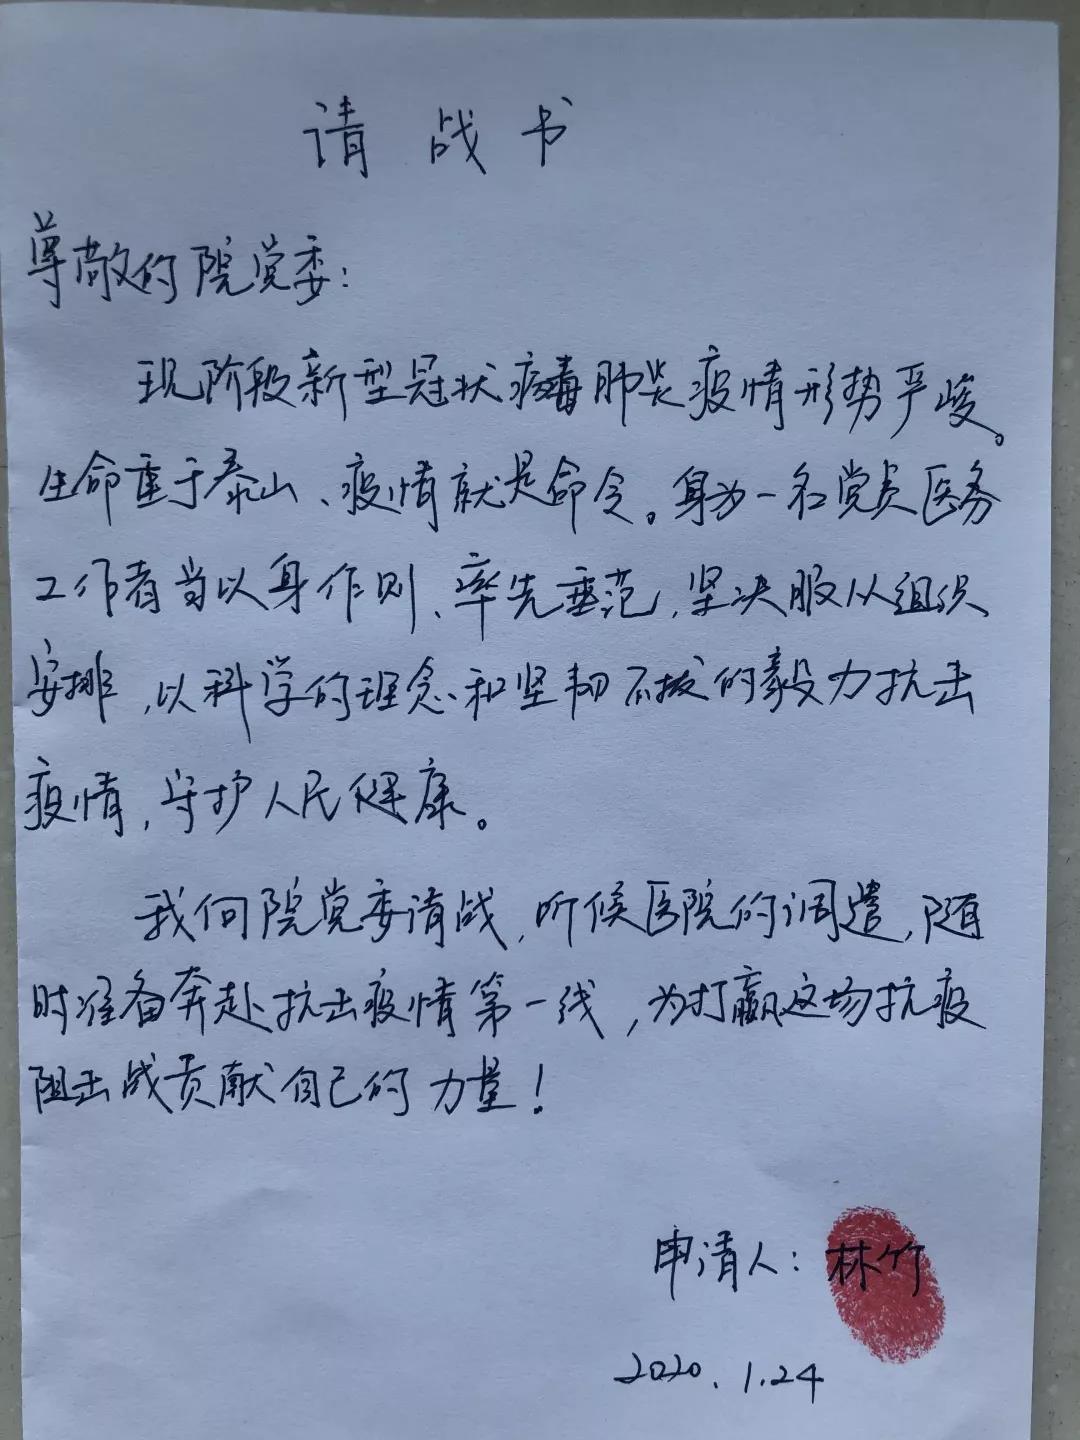 请战书
尊敬的院党委：
现阶段新型冠状病毒肺炎疫情形势严峻。
生命重于泰山、疫情就是命令。身为一名党员医务
工作者当以身作则、率先垂范，坚决服从组织
安排，以科学的理念和坚韧不拔的毅力抗击
疫情，守护人民健康。
我向院党委请战，听候医院的调遣，随
时准备奔赴抗击疫情第一线，为打赢这场抗疫
阻击战贡献自己的力量！
申请人：林竹
2020.1.24